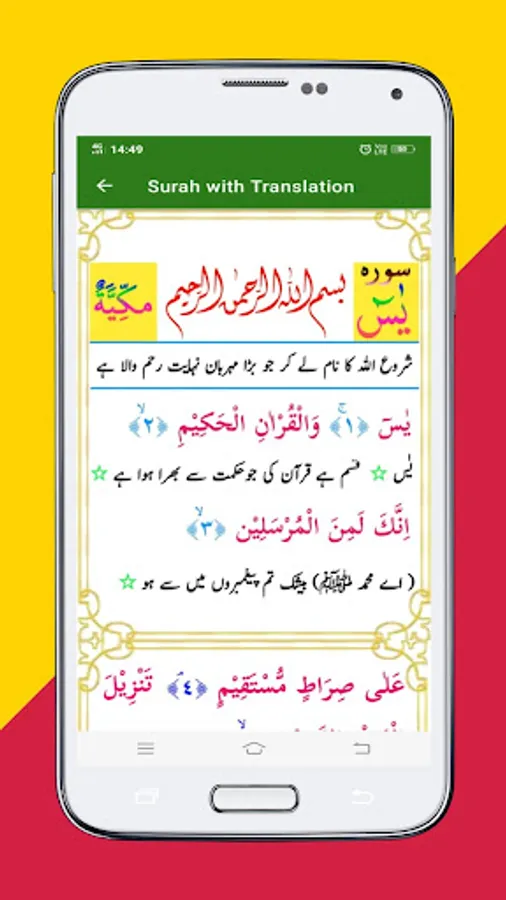 14:49
Surah with Translation
سورہ
یٰسٓ
بسم اللہ الرحمٰن الرحیم
مکِّیَّۃٌ
شروع اللہ کا نام لے کر جو بڑا مہربان نہایت رحم والا ہے
یٰسٓ ﴿۱﴾ وَالْقُرْاٰنِ الْحَکِیْمِ ﴿۲﴾
یٰس ☆ قسم ہے قرآن کی جو حکمت سے بھرا ہوا ہے ☆
اِنَّکَ لَمِنَ الْمُرْسَلِیْن ﴿۳﴾
( اے محمد ﷺ) بیشک تم پیغمبروں میں سے ہو ☆
عَلٰی صِرَاطٍ مُّسْتَقِیْمٍ ﴿۴﴾ تَنْزِیْلَ